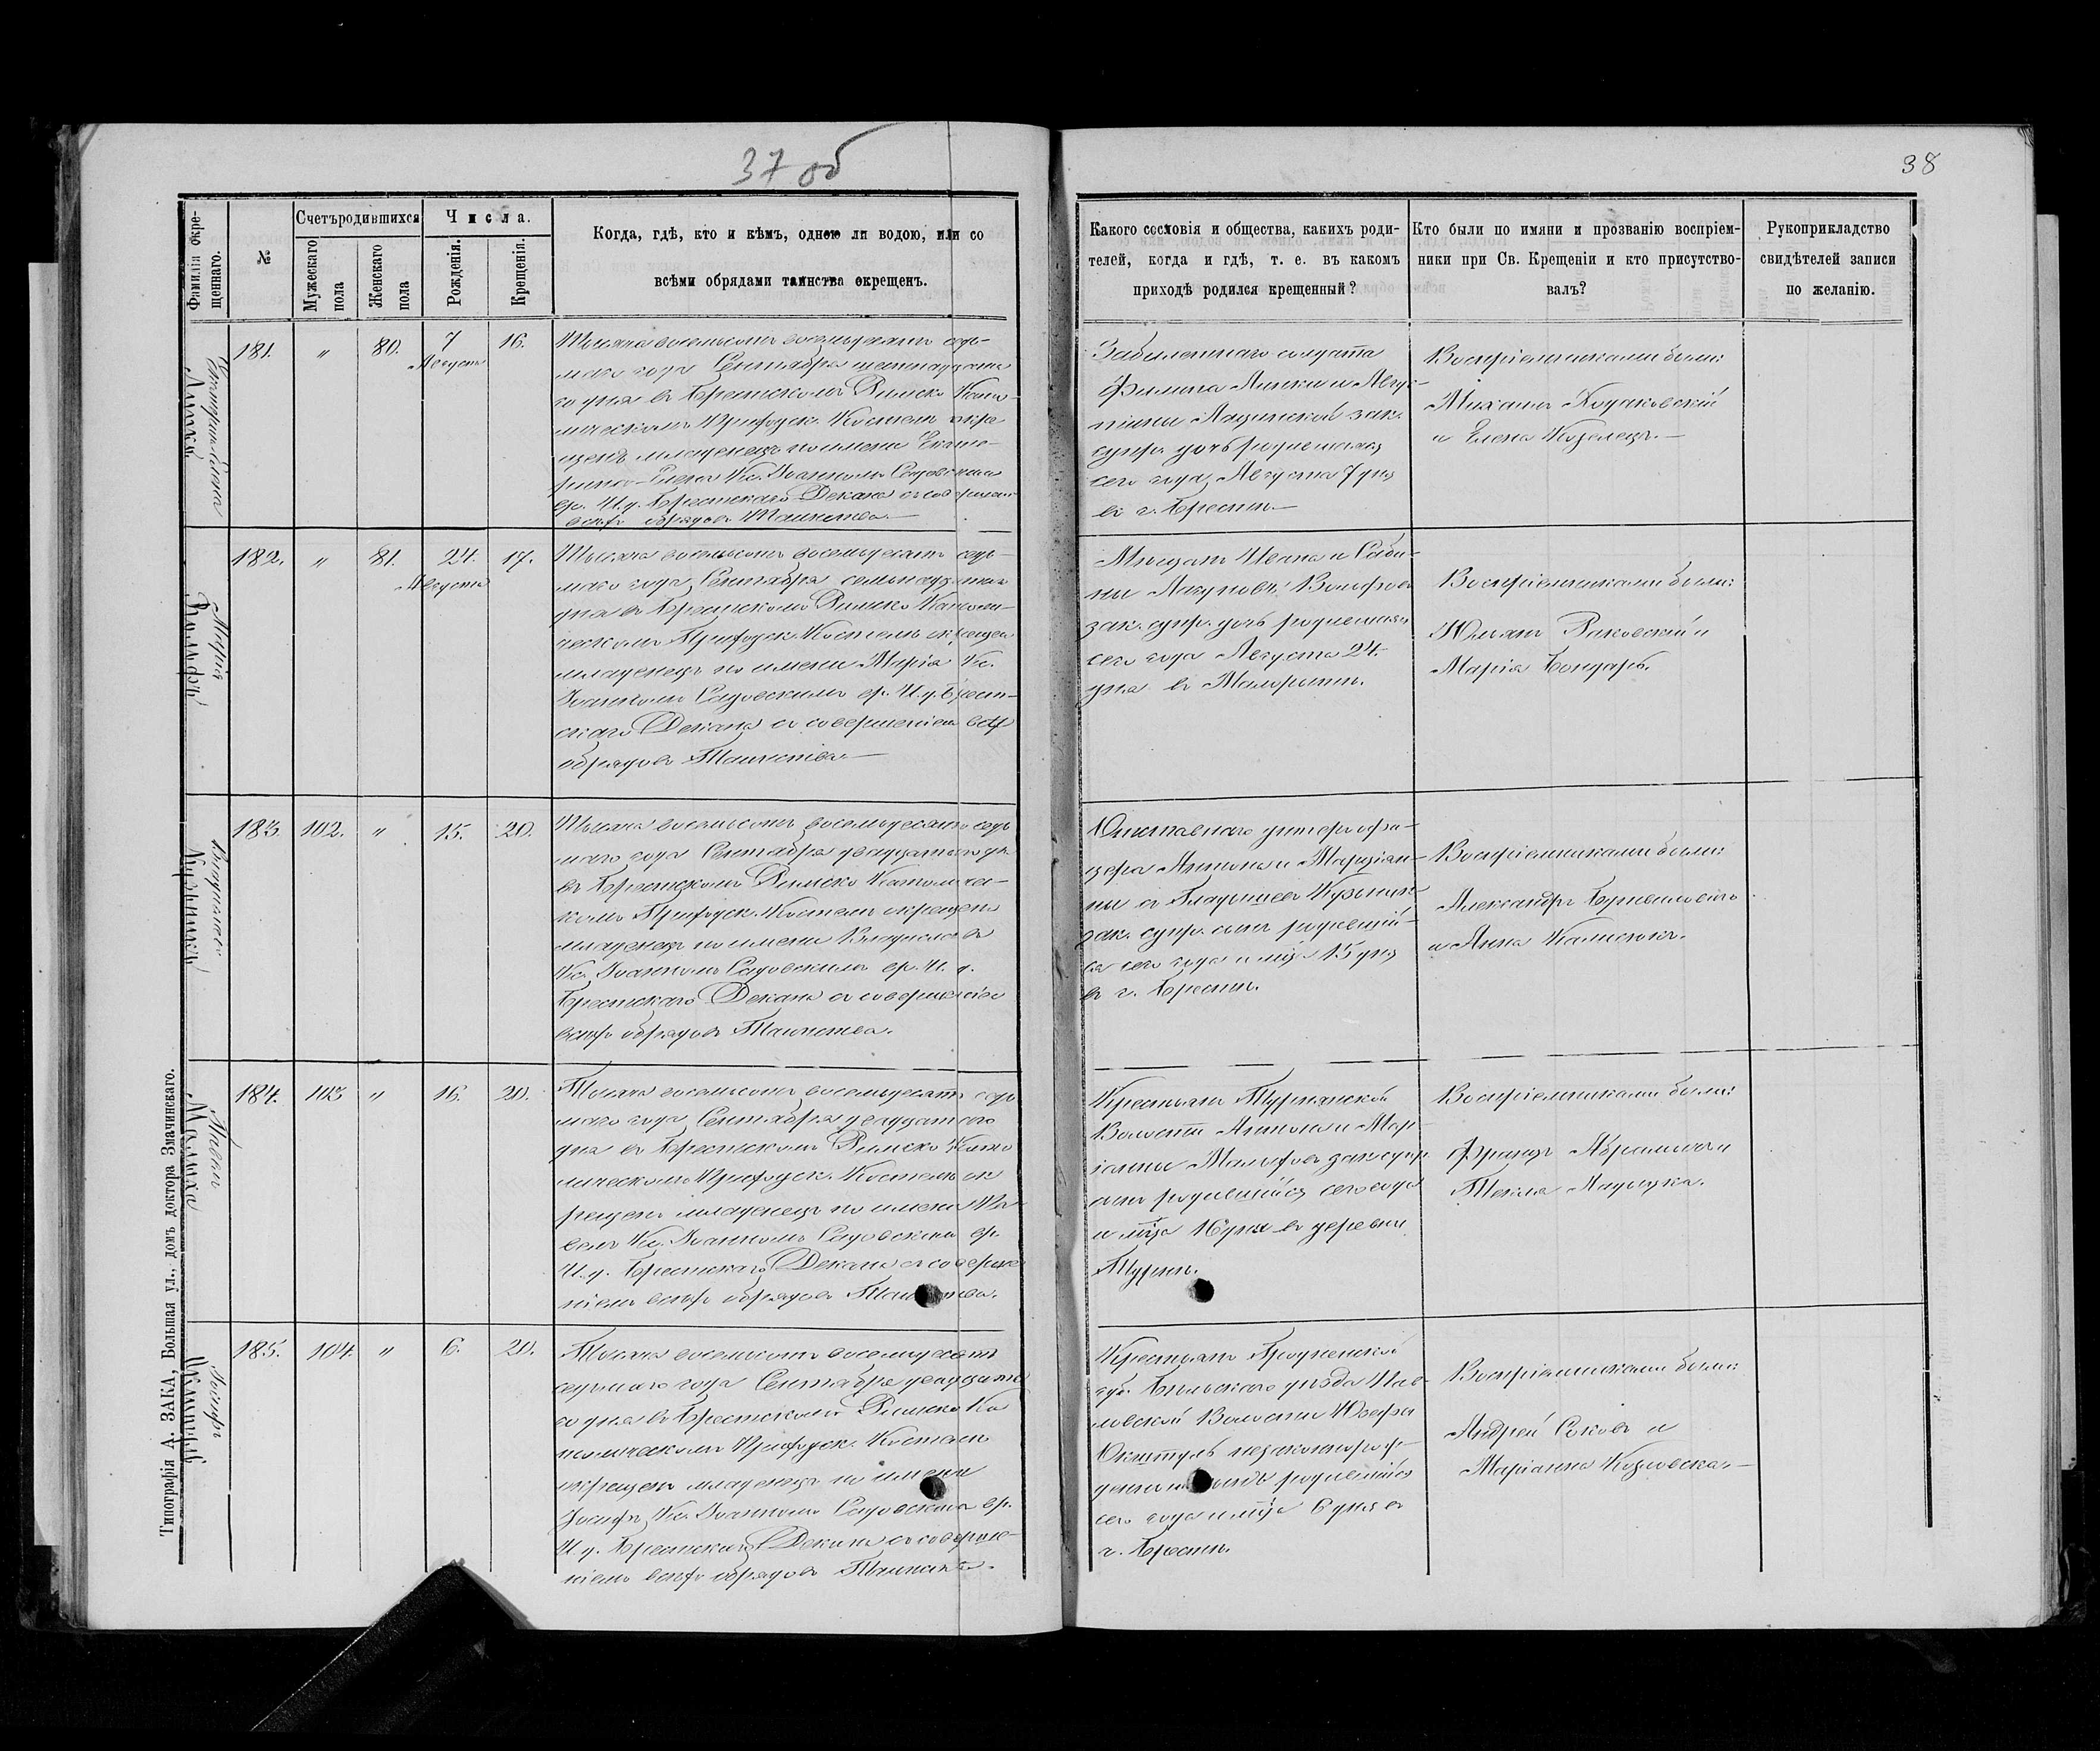 37 об
38
Фамилія окре-
щеннаго.
№
Счетъ родившихся
Мужескаго
пола
Женскаго
пола
Числа.
Рожденія.
Крещенія.
Когда, гдѣ, кто и кѣмъ, одною ли водою, или со
всѣми обрядами таинства окрещенъ.
Какого сословія и общества, какихъ роди-
телей, когда и гдѣ, т. е. въ какомъ
приходѣ родился крещенный?
Кто были по имяни и прозванію воспріем-
ники при Св. Крещеніи и кто присутство-
валъ?
Рукоприкладство
свидѣтелей записи
по желанію.
Екатерина-Елена
181.
"
80.
7
Августа
16.
Тысяча восемьсотъ восемьдесятъ седь-
маго года Сентября шестнадцата
го дня въ Брестскомъ Римско Като-
лическомъ Приходск. Костелѣ окре
щенъ младенецъ по имени Екате-
рина-Елена Кс. Іоанномъ Садовскимъ
И. д. Брестскаго Декана съ соверше
всѣхъ обрядовъ Таинства.—
Забилетнаго солдата
Филипа и Авгус-
тины зак.
супр. дочь родившаяся
сего года Августа 7 дня
въ г. Брестѣ.—
Воспріемниками были:
Михаилъ Ходаковскій
и Елена Козелецъ.—
Марія
182.
"
81.
24.
Августа
17.
Тысяча восемьсотъ восемьдесятъ седь-
маго года Сентября семнадцатаго
дня въ Брестскомъ Римско Католи-
ческомъ Приходск. Костелѣ окрещенъ
младенецъ по имени Марія Кс.
Іоанномъ Садовскимъ И. д. Брест-
скаго Декана съ совершеніемъ всѣхъ
обрядовъ Таинства.—
Мѣщанъ Ивана и Саби-
ны
зак. супр. дочь родившаяся
сего года Августа 24.
дня въ Малорытѣ.
Воспріемниками были:
Юліанъ Раковскій и
Марія Бондарь.
Владиславъ
183.
102.
"
15.
20.
Тысяча восемьсотъ восемьдесятъ седь
маго года Сентября двадцатаго дн.
въ Брестскомъ Римско Католичес-
комъ Приходск. Костелѣ окрещенъ
младенецъ по имени Владиславъ
Кс. Іоанномъ Садовскимъ И. д.
Брестскаго Декана съ совершеніемъ
всѣхъ обрядовъ Таинства.
Отставнаго унтеръ офи-
цера Антона и Марціан-
ны
зак. супр. сынъ родившій-
ся сего года и м-ца 15 дня
въ г. Брестѣ.
Воспріемниками были:
Александръ
и Анна
Павелъ
Малиха
184.
103
"
16.
20.
Тысяча восемьсотъ восемьдесятъ седь
маго года Сентября двадцатаго
дня въ Брестскомъ Римско Като
лическомъ Приходск. Костелѣ ок
рещенъ младенецъ по имени Па
велъ Кс. Іоанномъ Садовскимъ
И. д. Брестскаго Декана съ соверше
ніемъ всѣхъ обрядовъ Таинства.
Крестьянъ Турнянской
Волости Антона и Мар-
іанны зак. супр.
сынъ родившійся сего года
и м-ца 16 дня въ деревни
Турнѣ.
Воспріемниками были:
Францъ Абрамчикъ и
Текля
Іосифъ
185.
104.
"
6.
20.
Тысяча восемьсотъ восемьдесятъ
седьмаго года Сентября двадцата
го дня въ Брестскомъ Римско Ка
толическомъ Приходск. Костелѣ
окрещенъ младенецъ по имени
Іосифъ Кс. Іоанномъ Садовскимъ
И д. Брестскаго Декана съ соверше-
ніемъ всѣхъ обрядовъ Таинства.
Крестьянъ Гродненской
губ. Бѣльскаго уѣзда Пав-
ловской Волости Юзефы
незаконнорож-
денный сынъ родившійся
сего года и м-ца 6 дня въ
г. Брестѣ.
Воспріемниками были:
Андрей и
Маріанна Козловска.—
Типографія А. ЗАКА, Большая ул., домъ доктора Змачинскаго.